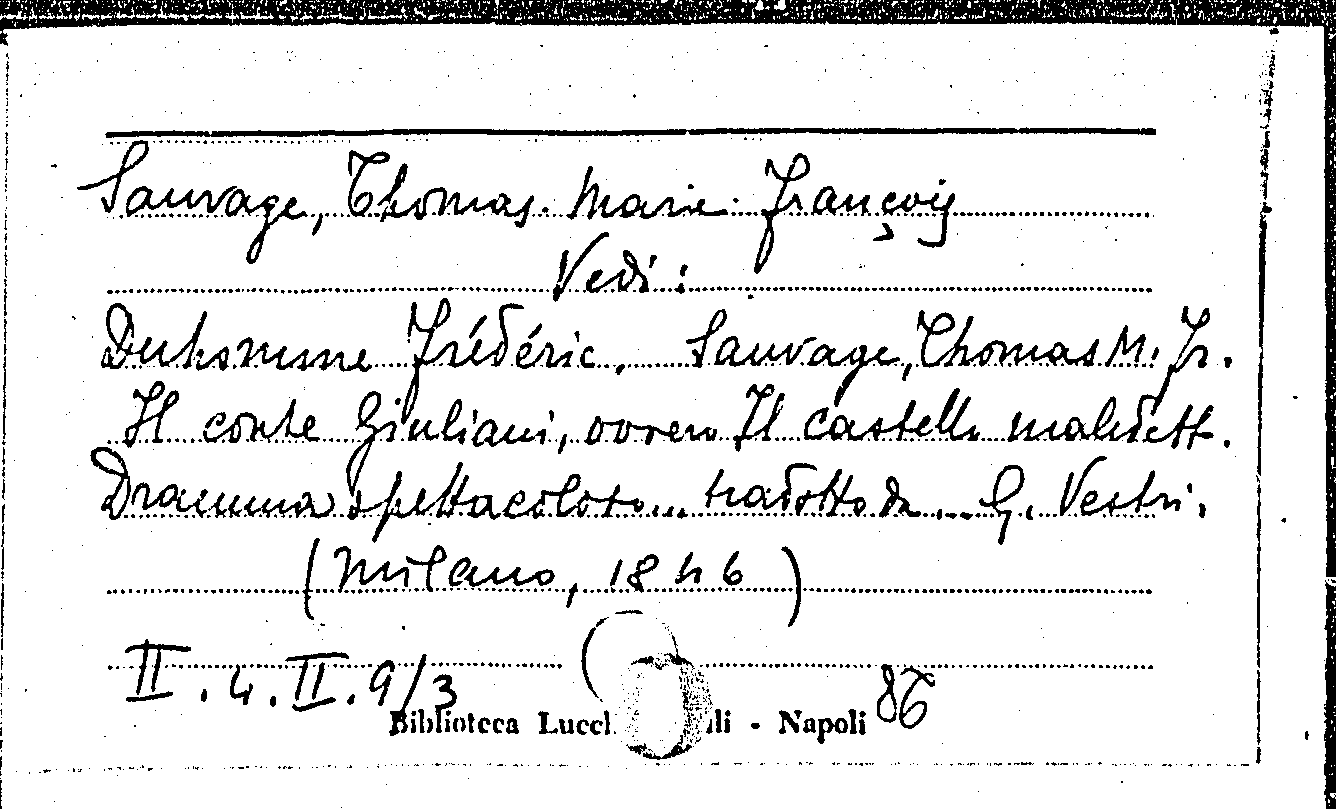 Sauvage, Thomas. Marie. François
Vedi:
Duhomme Frédéric. Sauvage, Thomas M. Fr.
Il conte Giuliani, ovvero Il castello maledett.
Dramma spettacoloso... tradotto da... G. Vestri.
(Milano, 1846)
II. 4. II. 9/3
Biblioteca Lucch li - Napoli